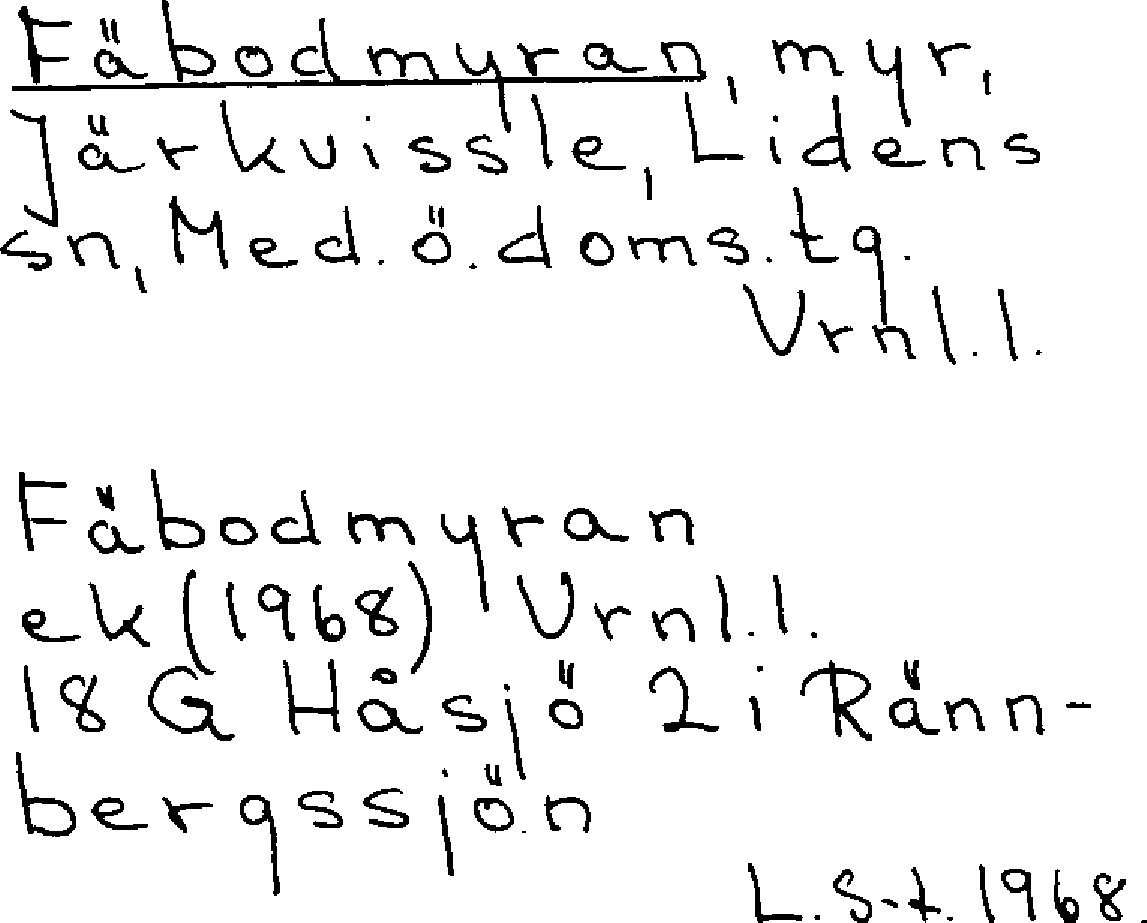 Fäbodmyran, myr,
Järkvissle, Lidens
sn, Med. ö. doms. tg.
Vrnl. l.
Fäbodmyran
ek (1968) Vrnl. l.
18 G Håsjö 2 i Ränn-
bergssjön
L. S-t. 1968.